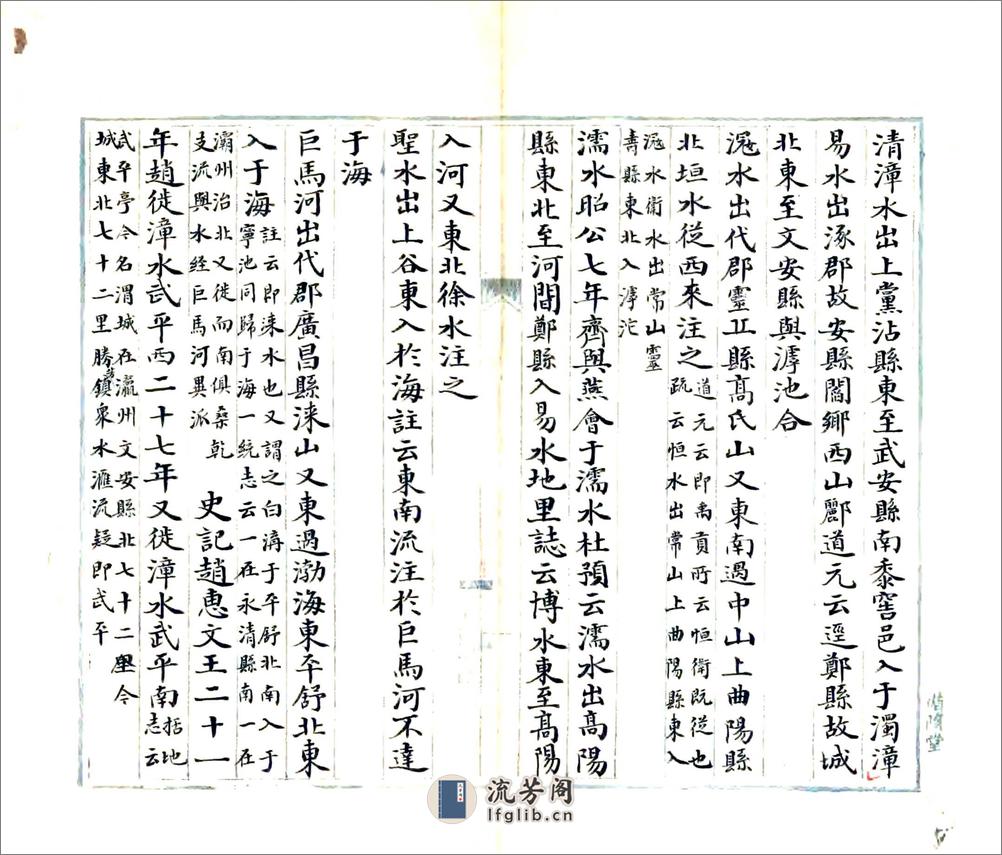 清漳水出上黨沾縣東至武安縣南黍窖邑入于濁漳
易水出涿郡故安縣閻鄉西山酈道元云逕鄭縣故城
北東至文安縣與滹池合
滱水出代郡靈丘縣高氏山又東南過中山上曲陽縣
北垣水從西來注之道元云即禹貢所云恒衛既從也
疏云恒水出常山上曲陽縣東入
滱水衛水出常山靈
壽縣東北入滹沱
濡水昭公七年齊與燕會于濡水杜預云濡水出高陽
縣東北至河間鄭縣入易水地里誌云博水東至高陽
入河又東北徐水注之
聖水出上谷東入於海註云東南流注於巨馬河不達
于海
巨馬河出代郡廣昌縣淶山又東過渤海東平舒北東
入于海註云即淶水也又謂之白溝于平舒北南入于
寧池同歸于海一統志云一在永清縣南一在
灞州治北又徙而南俱桑乾
支流與水經巨馬河異派
史記趙惠文王二十一
年趙徙漳水武平西二十七年又徙漳水武平南括地
志云
武平亭今名渭城在瀛州文安縣北七十二里今
城東北七十二里勝芳鎮衆水滙流疑即武平
流芳阁
lfglib.cn